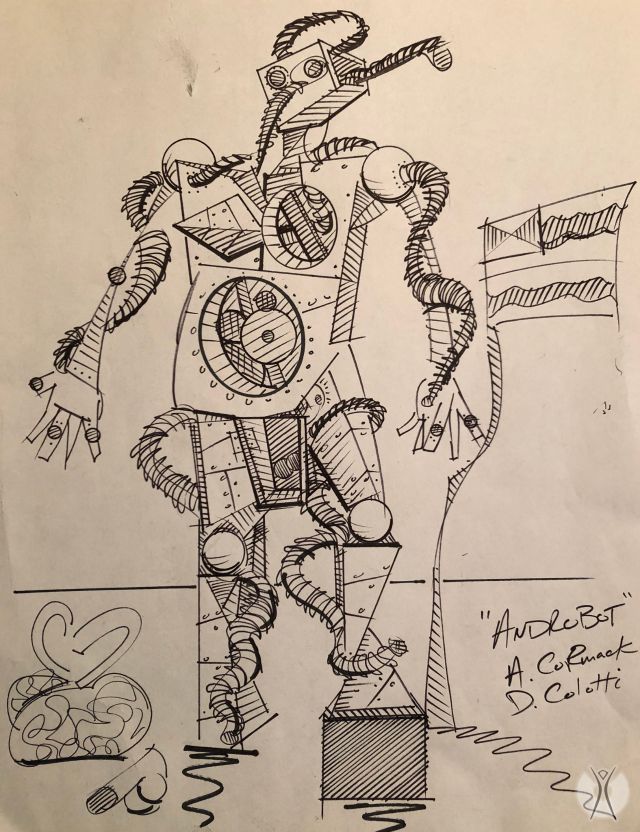 "ANDROBOT"
A. CORMACK
D. Colotti